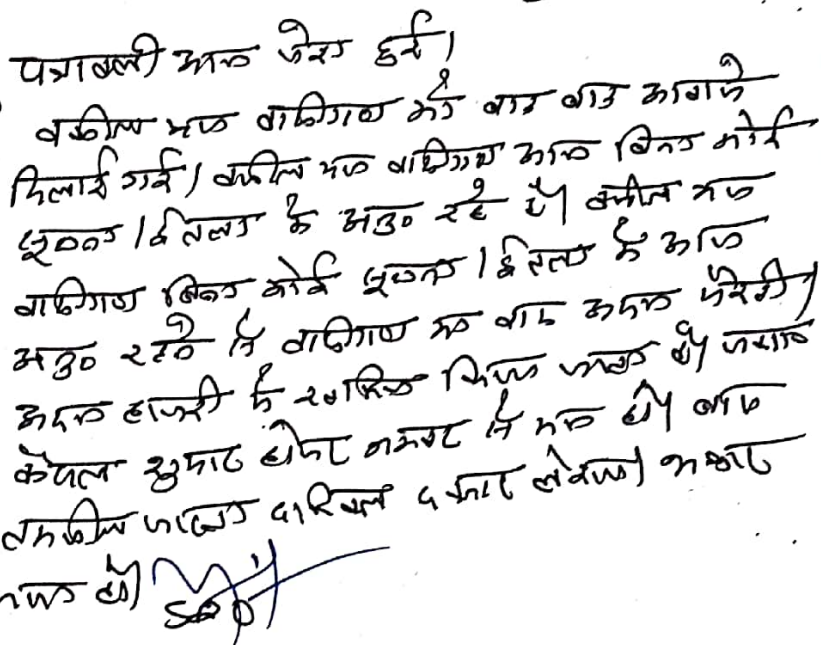 पत्रावली आज पेश हुई।
वकील मय वादीगण को बार बार आवाजे
दिलाई गई। वकील मय वादीगण आज बिना कोई
सूचना / ईतला के अनु० रहे है। वकील मय
वादीगण बिना कोई सूचना / ईतला के आज
अनु० रहने से वादीगण का वाद अदम पैरवी /
अदम हाजरी मे खारिज किया जाता है। पत्रावली
फैसल शुमार होकर नम्बर से कम हो। बाद
तकमील पत्रावली दाखिल दफ्तर लेवे।
हो।
SDO